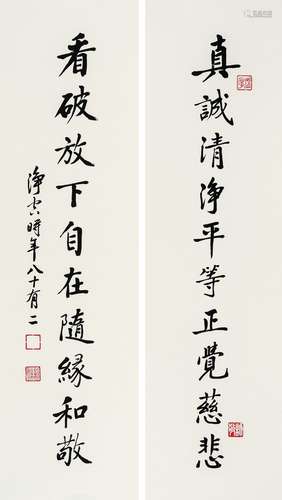 真誠清淨平等正覺慈悲
看破放下自在隨緣和敬
淨空時年八十有二